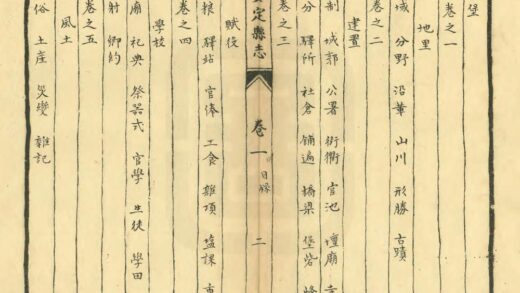 堡
卷之一
地里
域 分野 沿革 山川 形勝 古蹟
卷之二
建置
制 城郭 公署 街衢 官池 壇廟
分 驛所 社倉 鋪遞 橋梁 堡砦
卷之三
定縣志
卷一 目錄 二
賦役
粮 驛站 官俸 工食 雜項 塩課
卷之四
學校
廟 礼典 祭器式 官學 生徒 學田
射 鄉約
卷之五
風土
俗 土產 災變 雜記